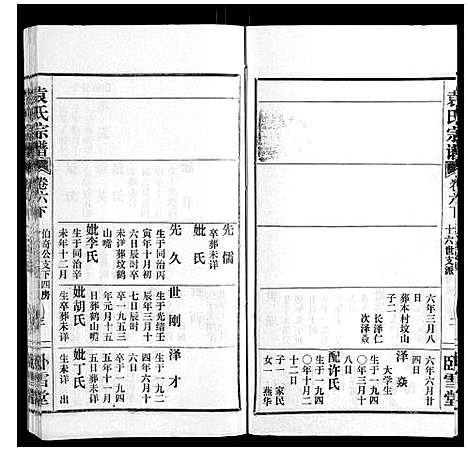 袁氏宗譜
卷六下
十六世支派
臥雪堂
六年三月八
葬本村坟山
子二
長泽仁
次泽焱
六年六月廿
日
泽焱
大学生
生于一九四
八日
配许氏
生于一九四
〇年十月二
十二日
子一 家民
女一 燕华
袁氏宗譜
卷六下
伯奇公支下四房
臥雪堂
先儒
妣氏
卒葬未详
先久
生于同治丙
寅年十月初
六日辰时卒
未详葬坟鹤
山嘴
妣李氏
生于同治辛
未年十二月
世刚
生于光绪壬
辰年三月十
七日辰时
卒一九五三
年元月十五
日葬鹤山嘴
妣胡氏
生卒葬未详
泽才
生于一九二
四年六月十
日卒一九四
五年十一月
五日葬未详
妣丁氏
生未详 出